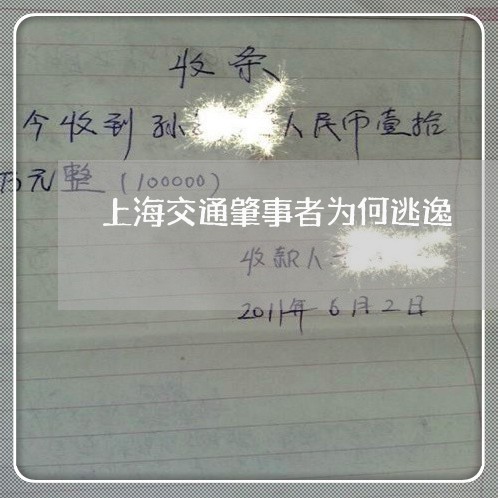 收条
今收到孙 人民币壹拾
万元整(100000)
上海交通肇事者为何逃逸
收款人
2011年6月2日